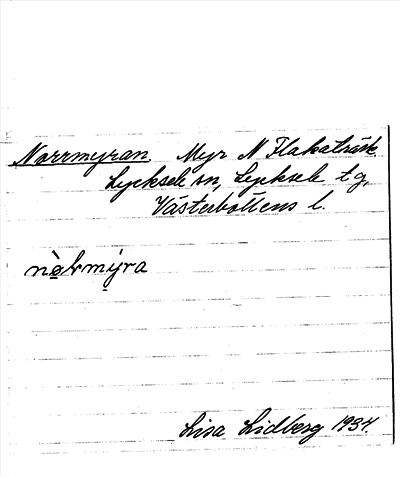 Norrmyran. Myr N Flakaträsk.
Lycksele sn, Lycksele tg,
Västerbottens l.
Lisa Lidberg 1934.